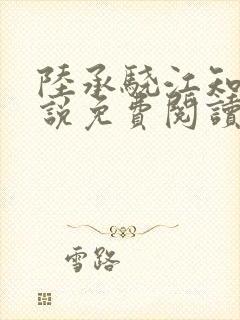 陸承驍江知
說免費閱讀
雪路